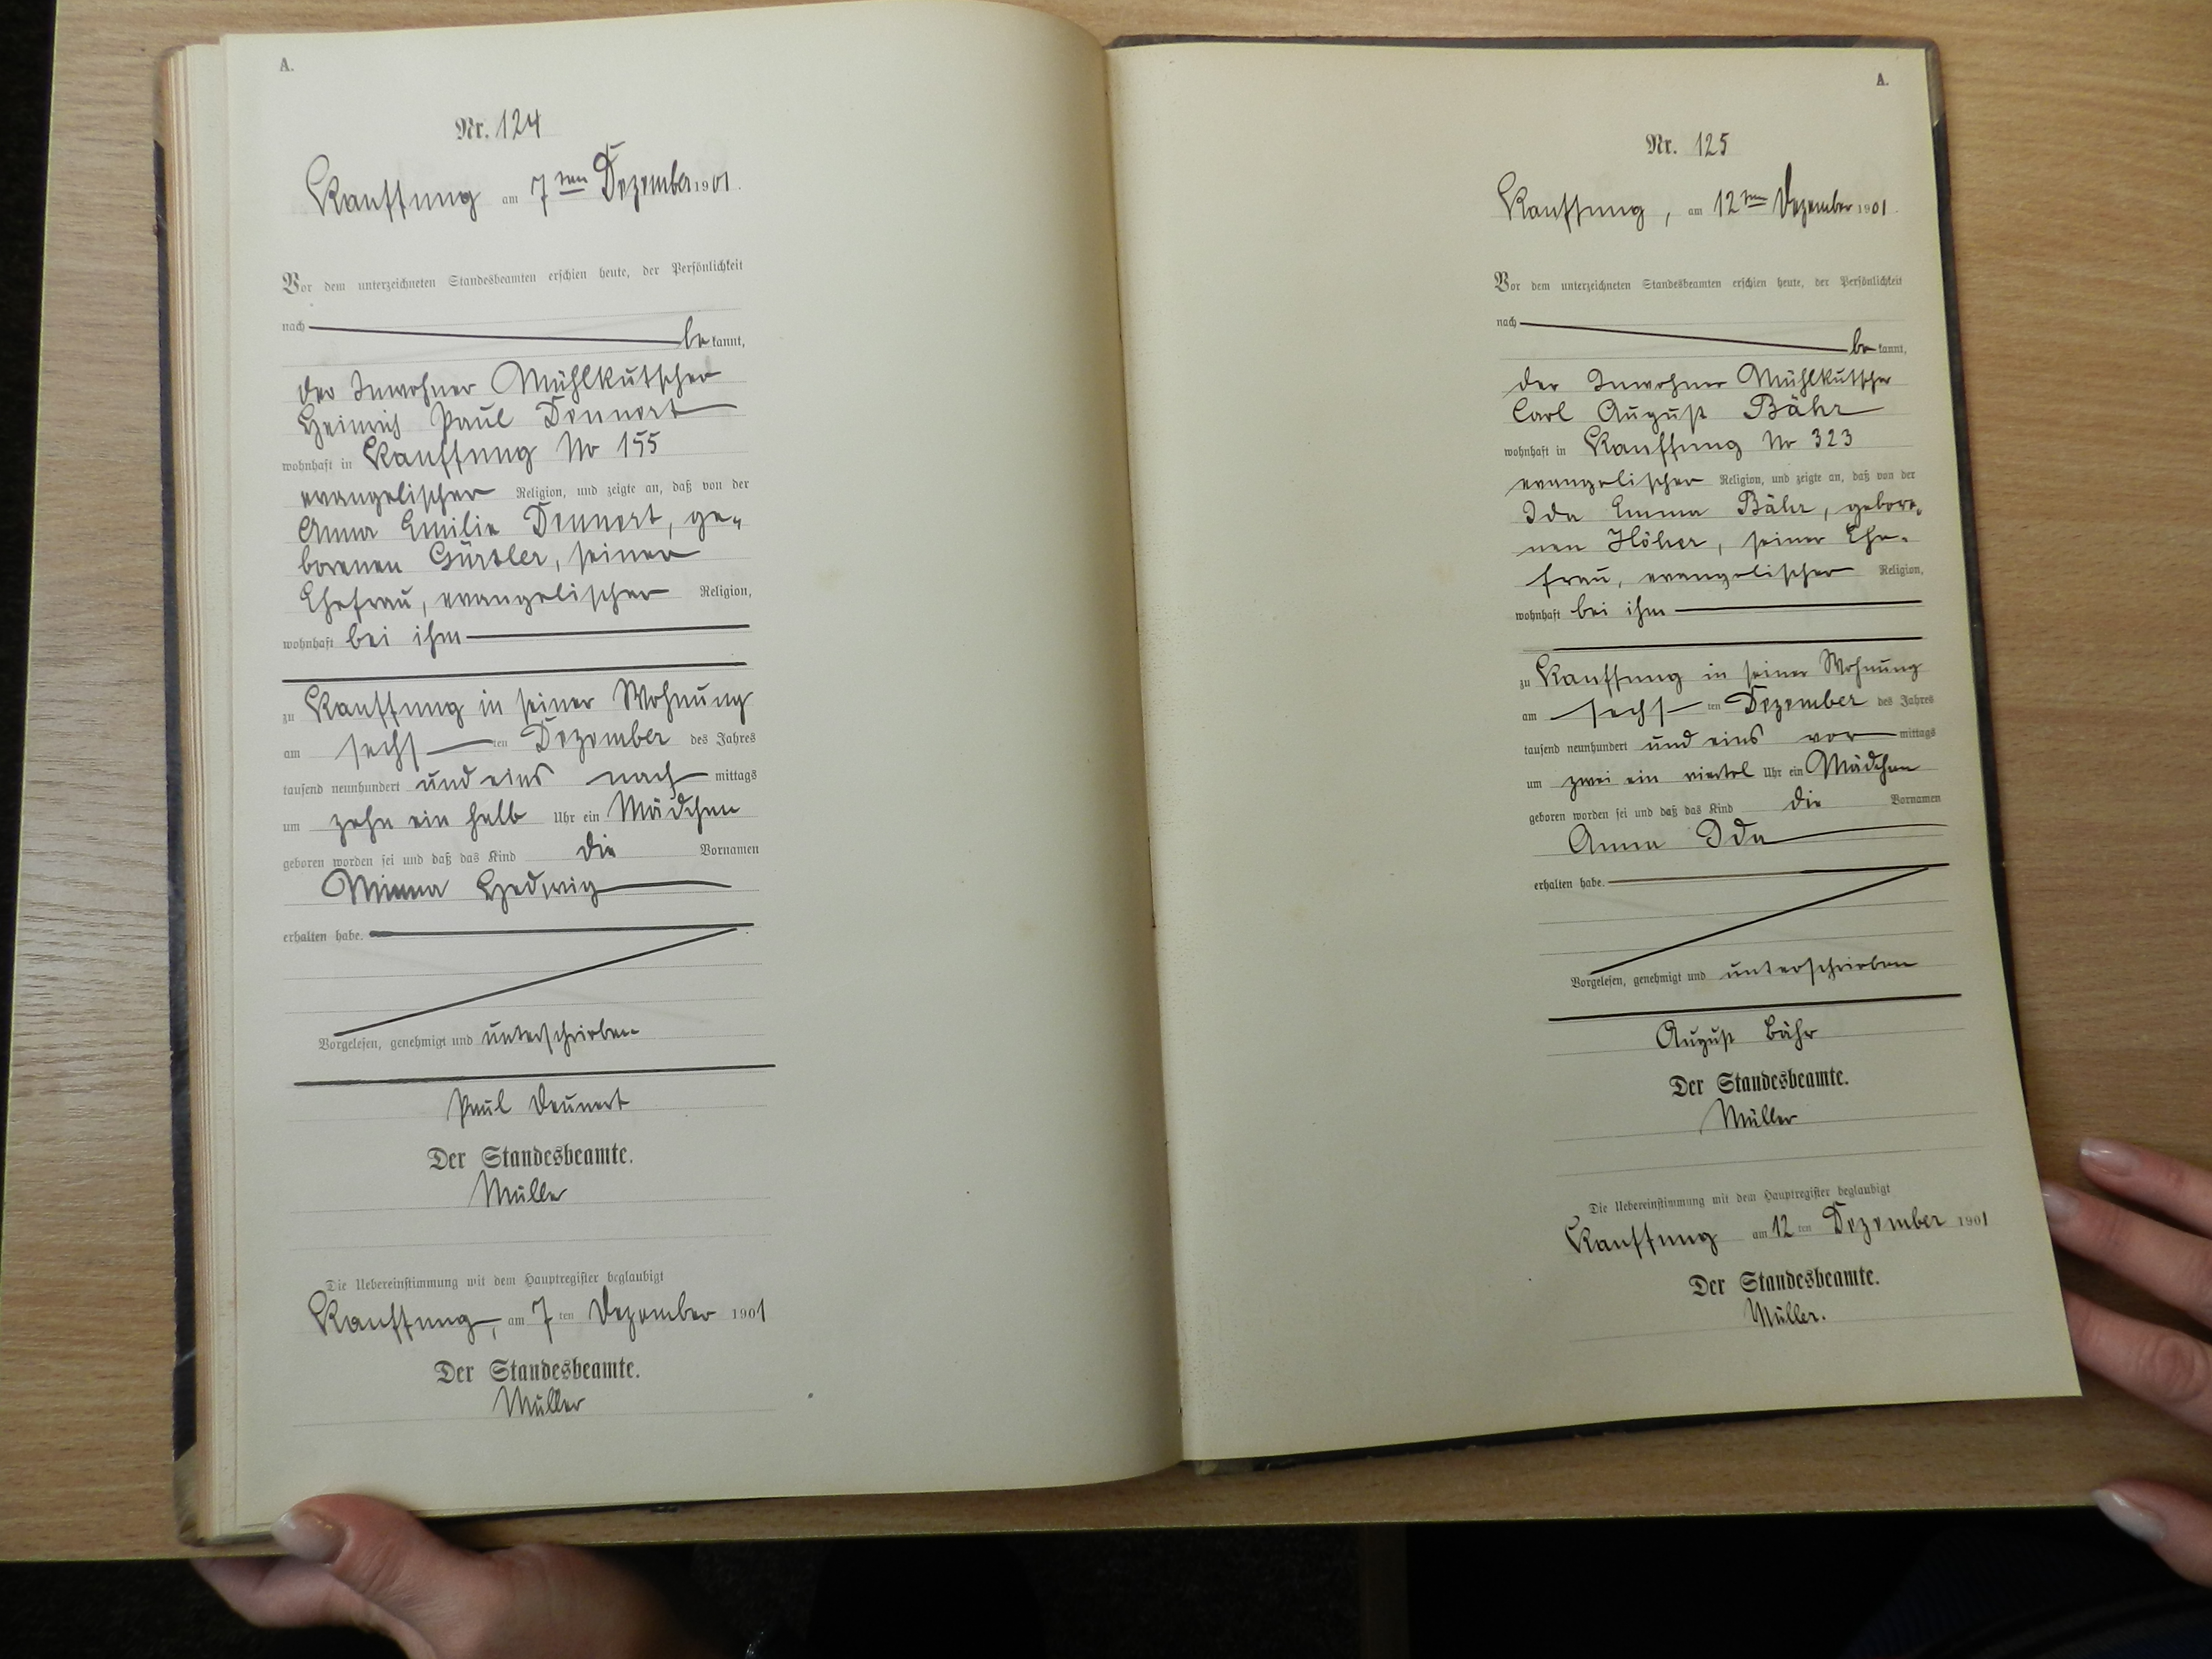 A.
Nr. 124
Kauffung am 7ten Dezember 1901.
Vor dem unterzeichneten Standesbeamten erschien heute, der Persönlichkeit
nach be kannt,
der Inwohner Mühlkutscher
Heinrich Paul Dennert
wohnhaft in Kauffung No 155
evangelischer Religion, und zeigte an, daß von der
Anna Emilie Dennert, ge-
borenen Gürtler, seiner
Ehefrau, evangelischer Religion,
wohnhaft bei ihm
zu Kauffung in seiner Wohnung
am sechsten Dezember des Jahres
tausend neunhundert und eins nachmittags
um zehn ein halb Uhr ein Mädchen
geboren worden sei und daß das Kind die Vornamen
Minna Hedwig
erhalten habe.
Vorgelesen, genehmigt und unterschrieben
Paul Dennert
Der Standesbeamte.
Müller
Die Uebereinstimmung mit dem Hauptregister beglaubigt
Kauffung, am 7ten Dezember 1901
Der Standesbeamte.
Müller
A.
Nr. 125
Kauffung, am 12ten Dezember 1901.
Vor dem unterzeichneten Standesbeamten erschien heute, der Persönlichkeit
nach be kannt,
der Inwohner Mühlkutscher
Carl August Bähr
wohnhaft in Kauffung No 323
evangelischer Religion, und zeigte an, daß von der
Ida Emma Bähr, gebore-
nen Höher, seiner Ehe-
frau, evangelischer Religion,
wohnhaft bei ihm
zu Kauffung in seiner Wohnung
am sechsten Dezember des Jahres
tausend neunhundert und eins vormittags
um zwei ein viertel Uhr ein Mädchen
geboren worden sei und daß das Kind die Vornamen
Anna Ida
erhalten habe.
Vorgelesen, genehmigt und unterschrieben
August Bähr
Der Standesbeamte.
Müller
Die Uebereinstimmung mit dem Hauptregister beglaubigt
Kauffung am 12ten Dezember 1901
Der Standesbeamte.
Müller.